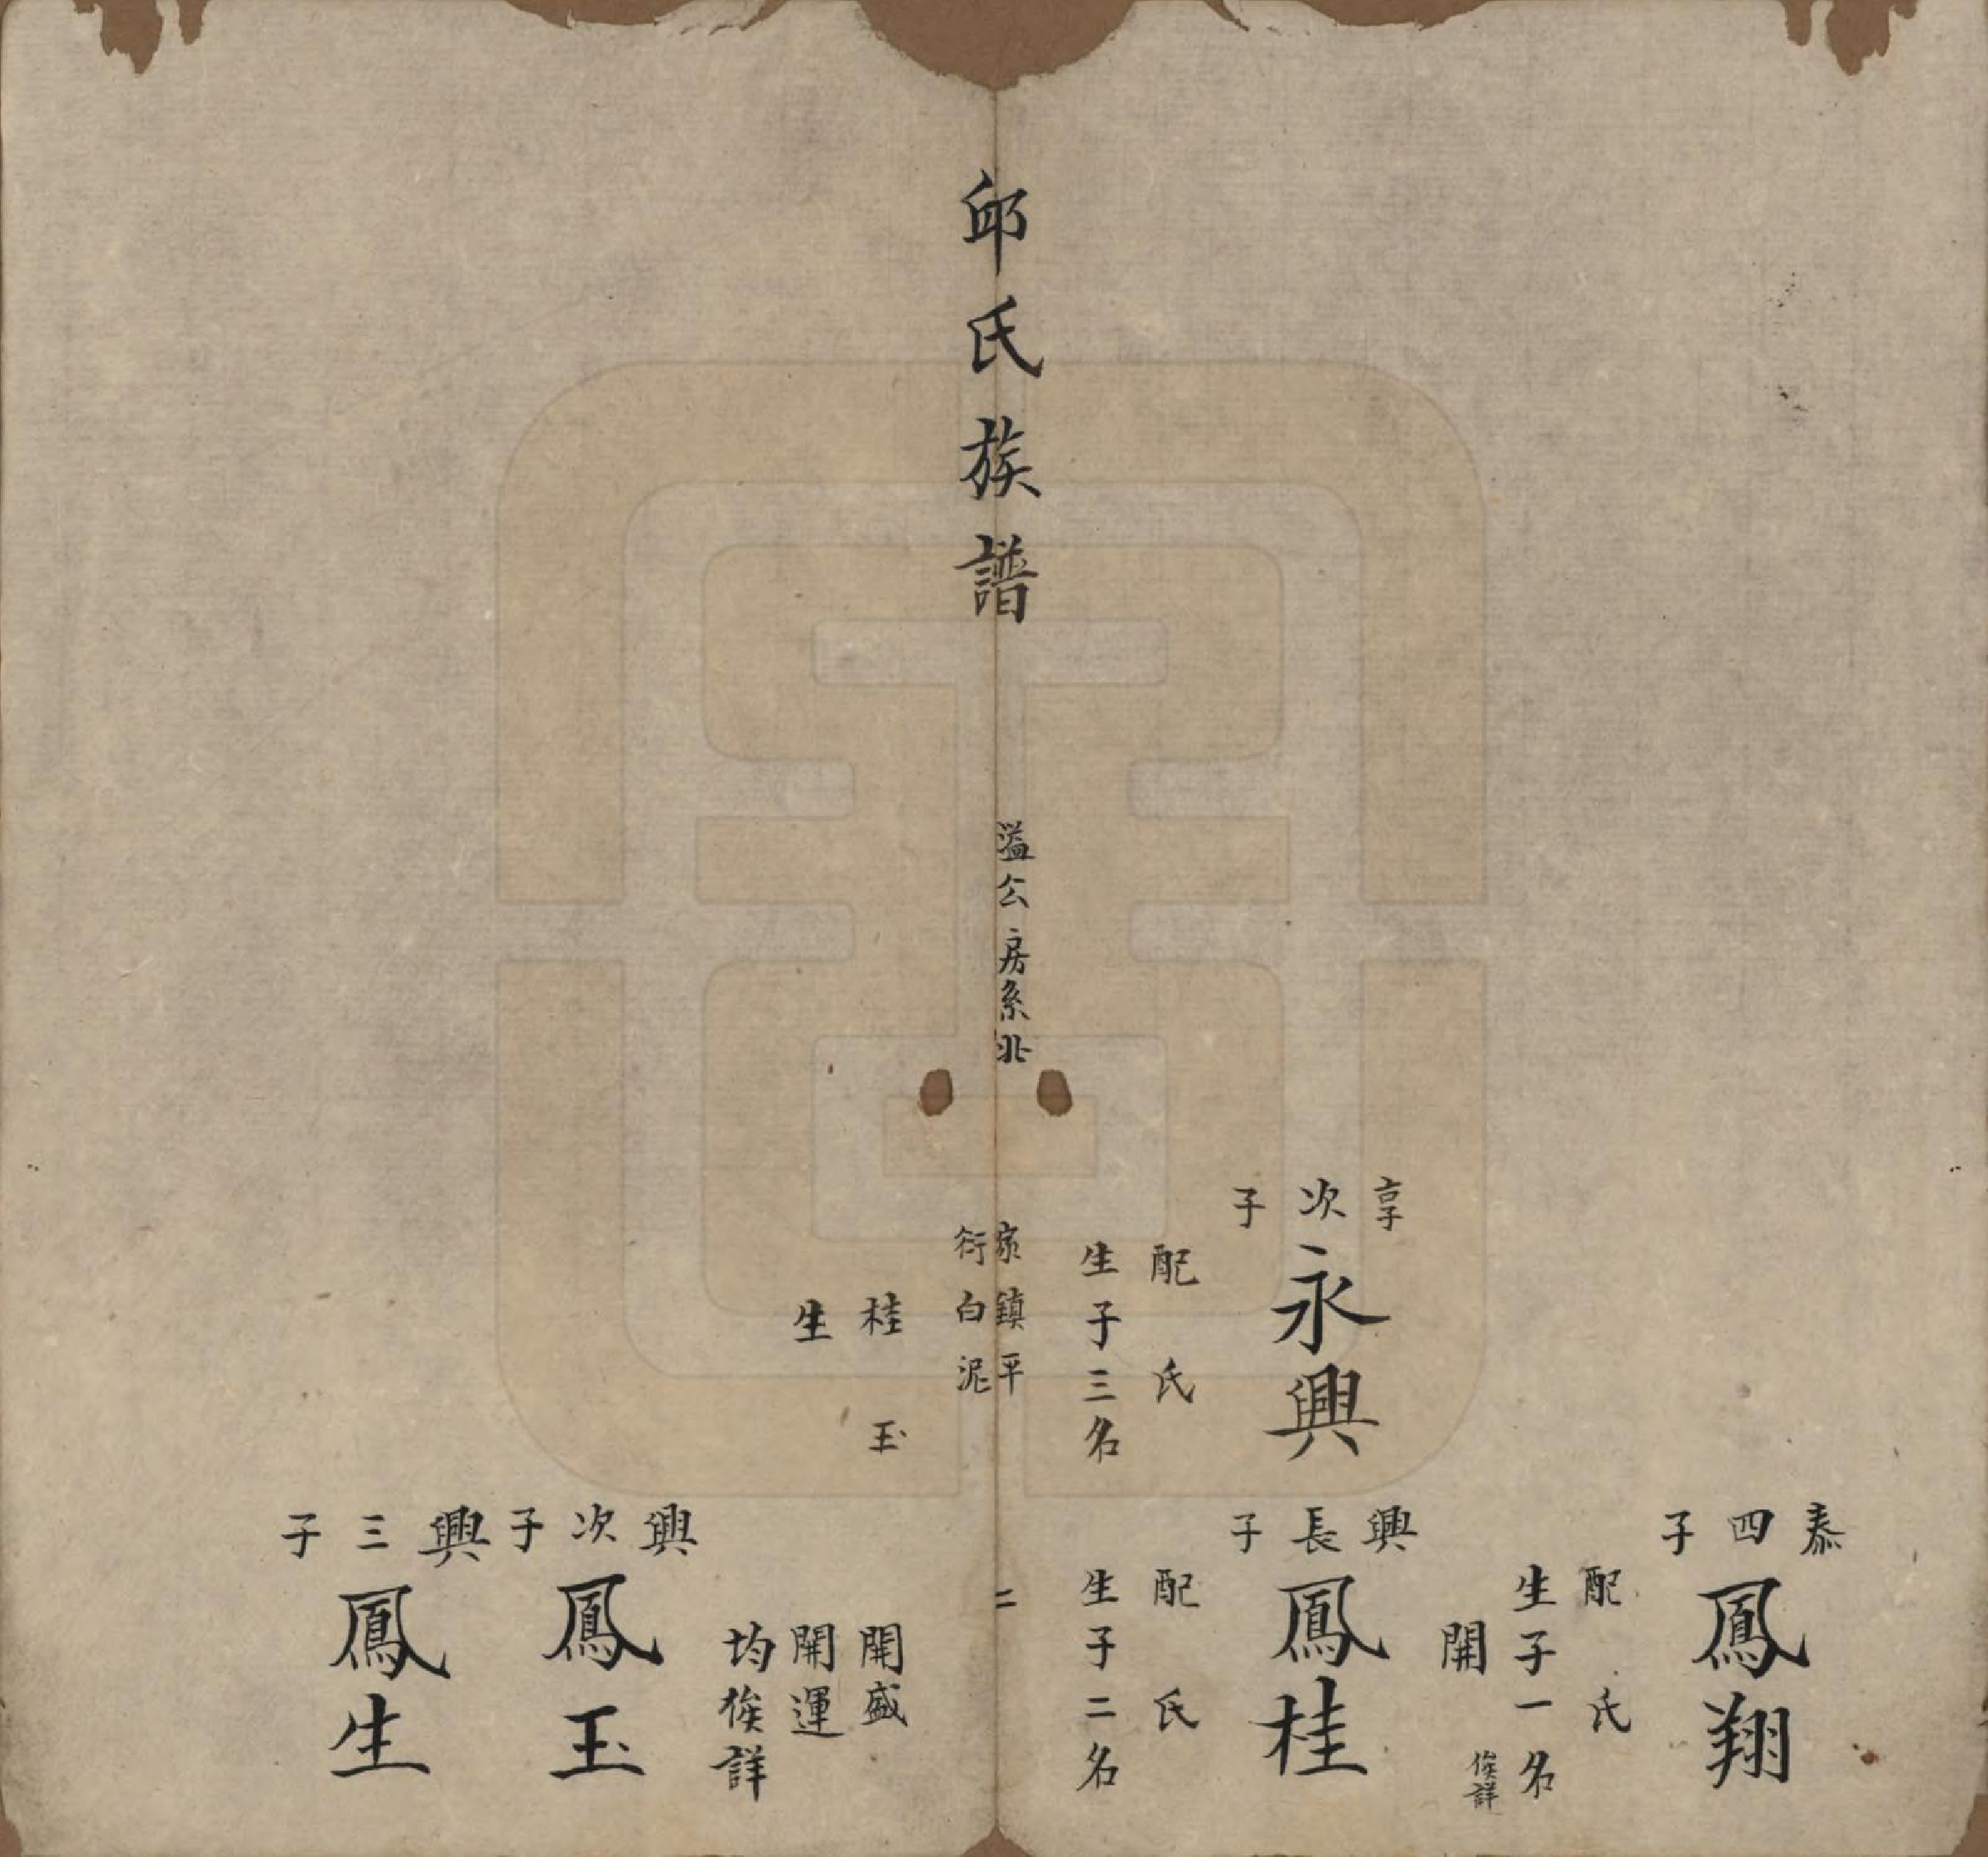 享次子
永興
配氏
生子三名
桂玉
生
泰四子
鳳翔
配氏
生子一名
開
俟詳
興長子
鳳桂
配氏
生子二名
開盛
開運
均俟詳
興次子
鳳玉
興三子
鳳生
邱氏族譜
溢公房系
北
家鎮平
衍白泥
二